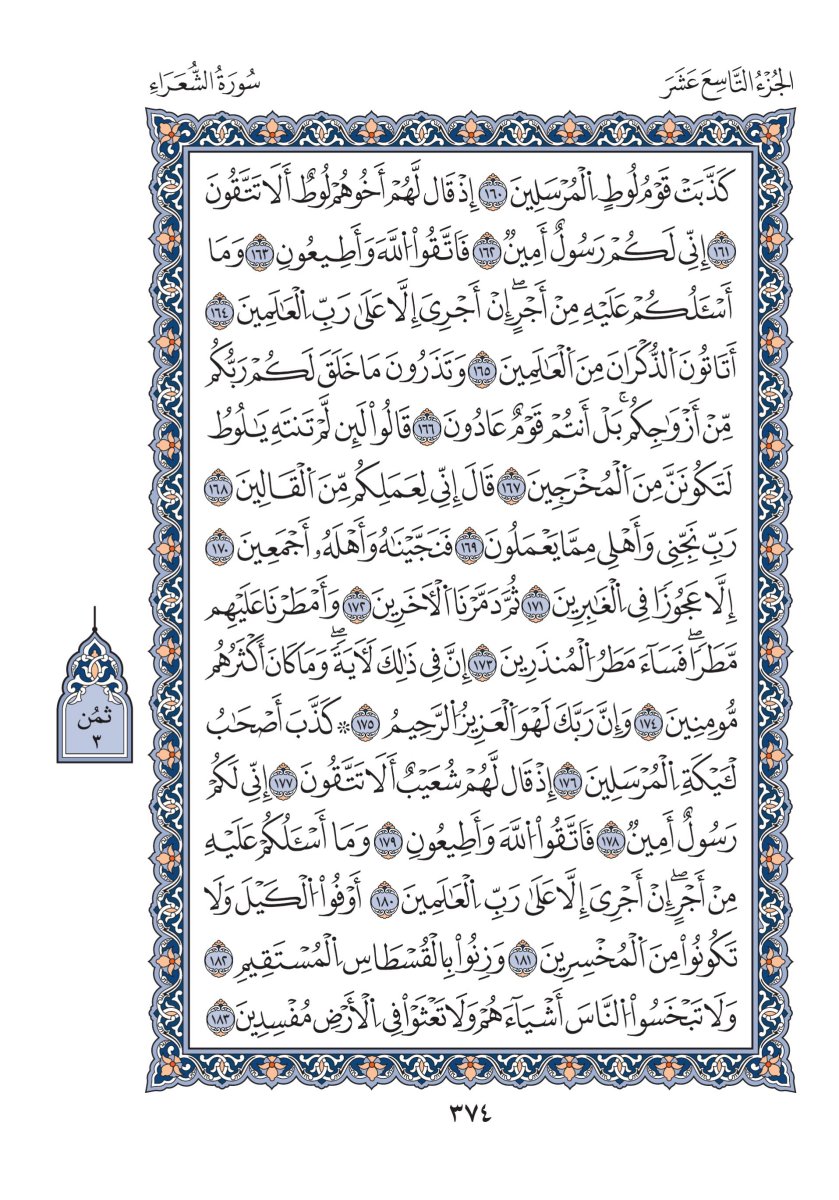 الجُزْءُ التَّاسِعَ عَشَرَ
سُورَةُ الشُّعَرَاءِ
كَذَّبَتْ قَوْمُ لُوطٍ اِ۬لْمُرْسَلِينَ ١٦٠ إِذْ قَالَ لَهُمْ أَخُوهُمْ لُوطٌ أَلَا تَتَّقُونَ
١٦١ إِنِّي لَكُمْ رَسُولٌ أَمِينٌ ١٦٢ فَاتَّقُوا۟ اُ۬للَّهَ وَأَطِيعُونِ ١٦٣ وَمَا
أَسْـَٔلُكُمْ عَلَيْهِ مِنْ أَجْرٍۖ إِنْ أَجْرِىَ إِلَّا عَلَىٰ رَبِّ اِ۬لْعَٰلَمِينَ ١٦٤
أَتَاتُونَ اَ۬لذُّكْرَانَ مِنَ اَ۬لْعَٰلَمِينَ ١٦٥ وَتَذَرُونَ مَا خَلَقَ لَكُمْ رَبُّكُم
مِّنْ أَزْوَٰجِكُمۚ بَلْ أَنتُمْ قَوْمٌ عَادُونَ ١٦٦ قَالُوا۟ لَئِن لَّمْ تَنتَهِ يَٰلُوطُ
لَتَكُونَنَّ مِنَ اَ۬لْمُخْرَجِينَ ١٦٧ قَالَ إِنِّي لِعَمَلِكُم مِّنَ اَ۬لْقَالِينَ ١٦٨
رَبِّ نَجِّنِي وَأَهْلِي مِمَّا يَعْمَلُونَ ١٦٩ فَنَجَّيْنَٰهُ وَأَهْلَهُۥ أَجْمَعِينَ ١٧٠
إِلَّا عَجُوزًا فِي اِ۬لْغَٰبِرِينَ ١٧١ ثُمَّ دَمَّرْنَا اَ۬لْأٓخَرِينَ ١٧٢ وَأَمْطَرْنَا عَلَيْهِم
مَّطَرًاۖ فَسَآءَ مَطَرُ اُ۬لْمُنذَرِينَ ١٧٣ إِنَّ فِي ذَٰلِكَ لَأٓيَةًۖ وَمَا كَانَ أَكْثَرُهُم
مُّومِنِينَ ١٧٤ وَإِنَّ رَبَّكَ لَهْوَ اَ۬لْعَزِيزُ اُ۬لرَّحِيمُ ١٧٥ ۞ كَذَّبَ أَصْحَٰبُ
لْـَٔيْكَةِ اِ۬لْمُرْسَلِينَ ١٧٦ إِذْ قَال لَّهُمْ شُعَيْبٌ أَلَا تَتَّقُونَ ١٧٧ إِنِّي لَكُمْ
رَسُولٌ أَمِينٌ ١٧٨ فَاتَّقُوا۟ اُ۬للَّهَ وَأَطِيعُونِ ١٧٩ وَمَا أَسْـَٔلُكُمْ عَلَيْهِ
مِنْ أَجْرٍۖ إِنْ أَجْرِىَ إِلَّا عَلَىٰ رَبِّ اِ۬لْعَٰلَمِينَ ١٨٠ أَوْفُوا۟ اُ۬لْكَيْلَ وَلَا
تَكُونُوا۟ مِنَ اَ۬لْمُخْسِرِينَ ١٨١ وَزِنُوا۟ بِالْقُسْطَاسِ اِ۬لْمُسْتَقِيمِ ١٨٢
وَلَا تَبْخَسُوا۟ اُ۬لنَّاسَ أَشْيَآءَهُمْ وَلَا تَعْثَوْا۟ فِي اِ۬لْأَرْضِ مُفْسِدِينَ ١٨٣
ثمُن
٣
٣٧٤